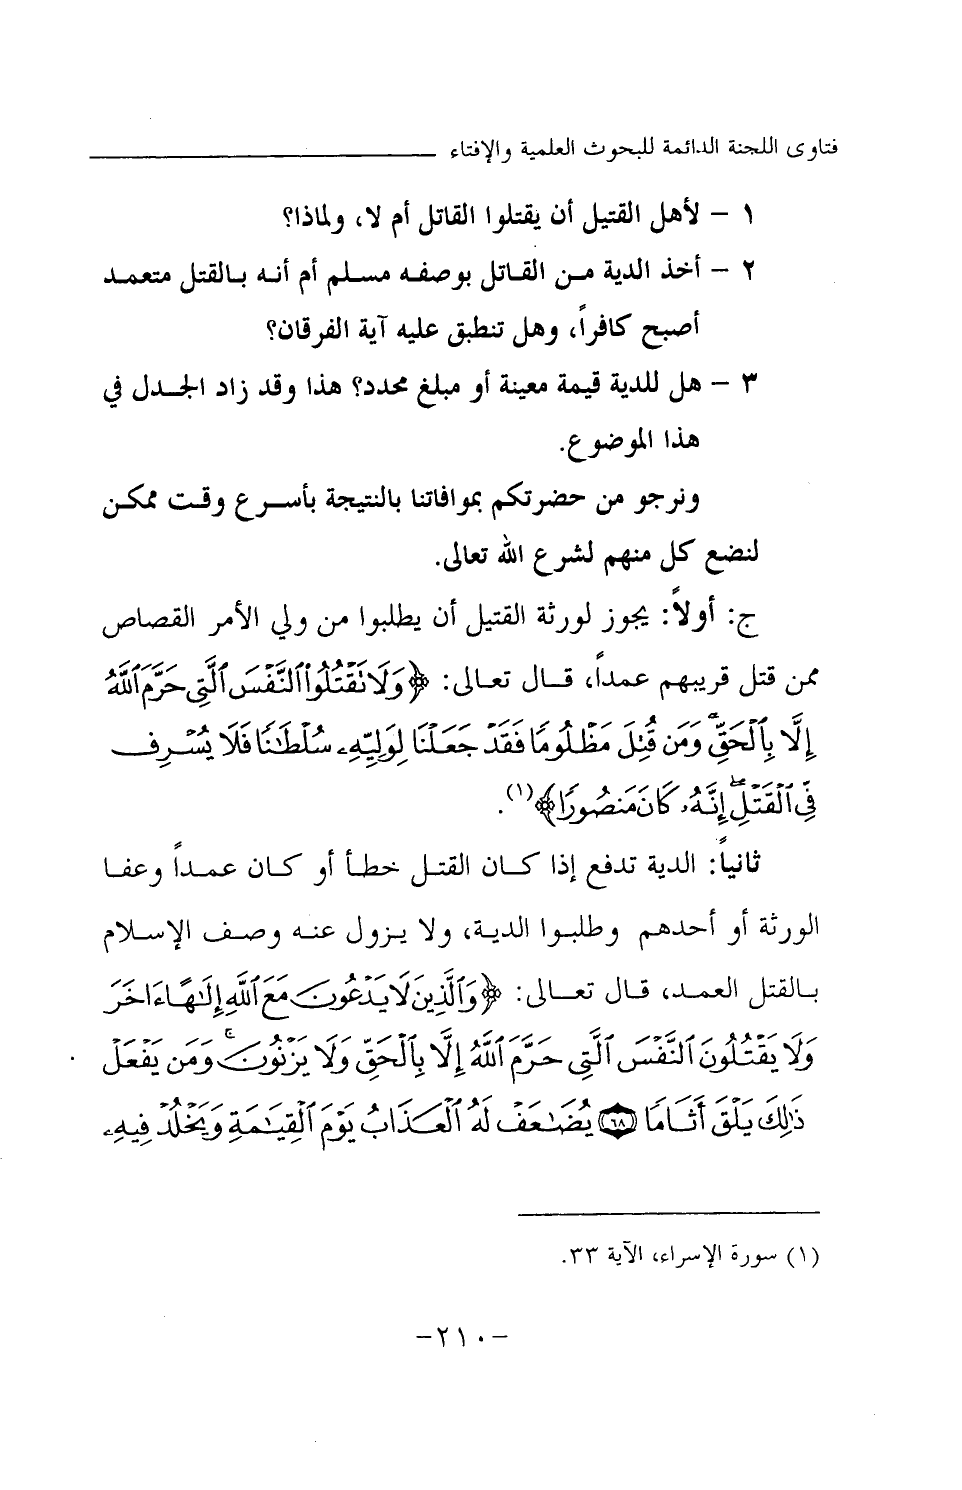 فتاوى اللجنة الدائمة للبحوث العلمية والإفتاء
١ - لأهل القتيل أن يقتلوا القاتل أم لا، ولماذا؟
٢ - أخذ الدية من القاتل بوصفه مسلم أم أنه بالقتل متعمد
أصبح كافراً، وهل تنطبق عليه آية الفرقان؟
٣ - هل للدية قيمة معينة أو مبلغ محدد؟ هذا وقد زاد الجدل في
هذا الموضوع.
ونرجو من حضرتكم بموافاتنا بالنتيجة بأسرع وقت ممكن
لنضع كل منهم لشرع الله تعالى.
ج: أولاً: يجوز لورثة القتيل أن يطلبوا من ولي الأمر القصاص
ممن قتل قريبهم عمداً، قال تعالى: ﴿وَلَا تَقْتُلُوا۟ ٱلنَّفْسَ ٱلَّتِى حَرَّمَ ٱللَّهُ
إِلَّا بِٱلْحَقِّ ۗ وَمَن قُتِلَ مَظْلُومًا فَقَدْ جَعَلْنَا لِوَلِيِّهِۦ سُلْطَٰنًا فَلَا يُسْرِف
فِّى ٱلْقَتْلِ ۖ إِنَّهُۥ كَانَ مَنصُورًا﴾(١).
ثانياً: الدية تدفع إذا كان القتل خطأ أو كان عمداً وعفا
الورثة أو أحدهم وطلبوا الدية، ولا يزول عنه وصف الإسلام
بالقتل العمد، قال تعالى: ﴿وَٱلَّذِينَ لَا يَدْعُونَ مَعَ ٱللَّهِ إِلَٰهًا ءَاخَرَ
وَلَا يَقْتُلُونَ ٱلنَّفْسَ ٱلَّتِى حَرَّمَ ٱللَّهُ إِلَّا بِٱلْحَقِّ وَلَا يَزْنُونَ ۚ وَمَن يَفْعَلْ
ذَٰلِكَ يَلْقَ أَثَامًا ﴿٦٨﴾ يُضَٰعَفْ لَهُ ٱلْعَذَابُ يَوْمَ ٱلْقِيَٰمَةِ وَيَخْلُدْ فِيهِۦ
(١) سورة الإسراء، الآية ٣٣.
-٢١٠-